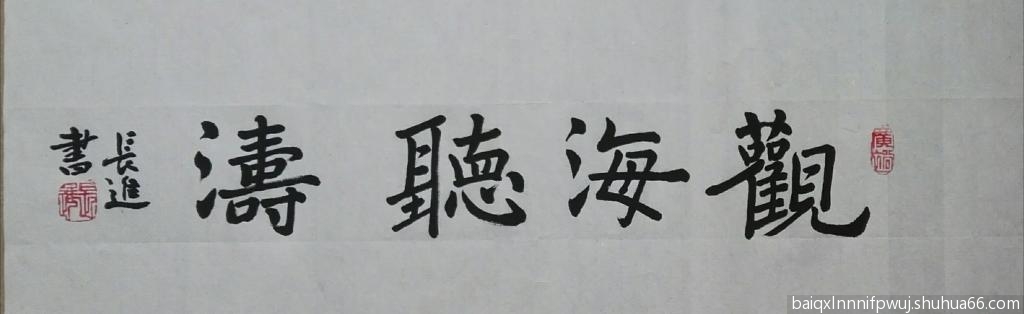 觀海聽濤
長進
書
baiqxlnnnifpwuj.shuhua66.com